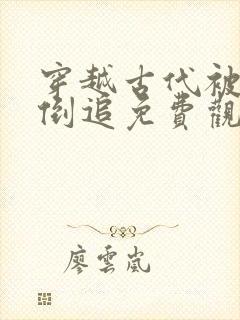 穿越古代被
倒追免費觀
廖雲嵐